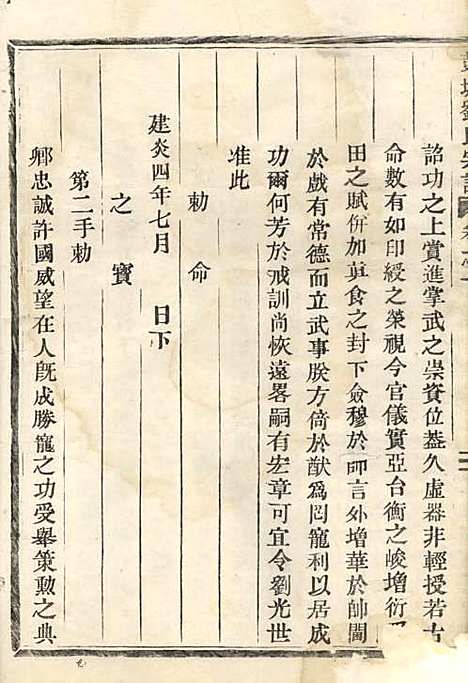 彭城劉氏宗譜 卷之一
詔功之上賞進掌武之崇資位葢久虛器非輕授若古
命數有如印綬之榮視今官儀實亞台衡之峻增衍
田之賦併加眞食之封下僉穆於師言外增華於帥閫
於戲有常德而立武事朕方倚於猷爲罔寵利以居成
功爾何芳於戒訓尚恢遠畧嗣有宏章可宜令劉光世
准此
勅命
建炎四年七月 日下
之寳
第二手勅
卿忠誠許國威望在人旣成勝寵之功受舉策勲之典